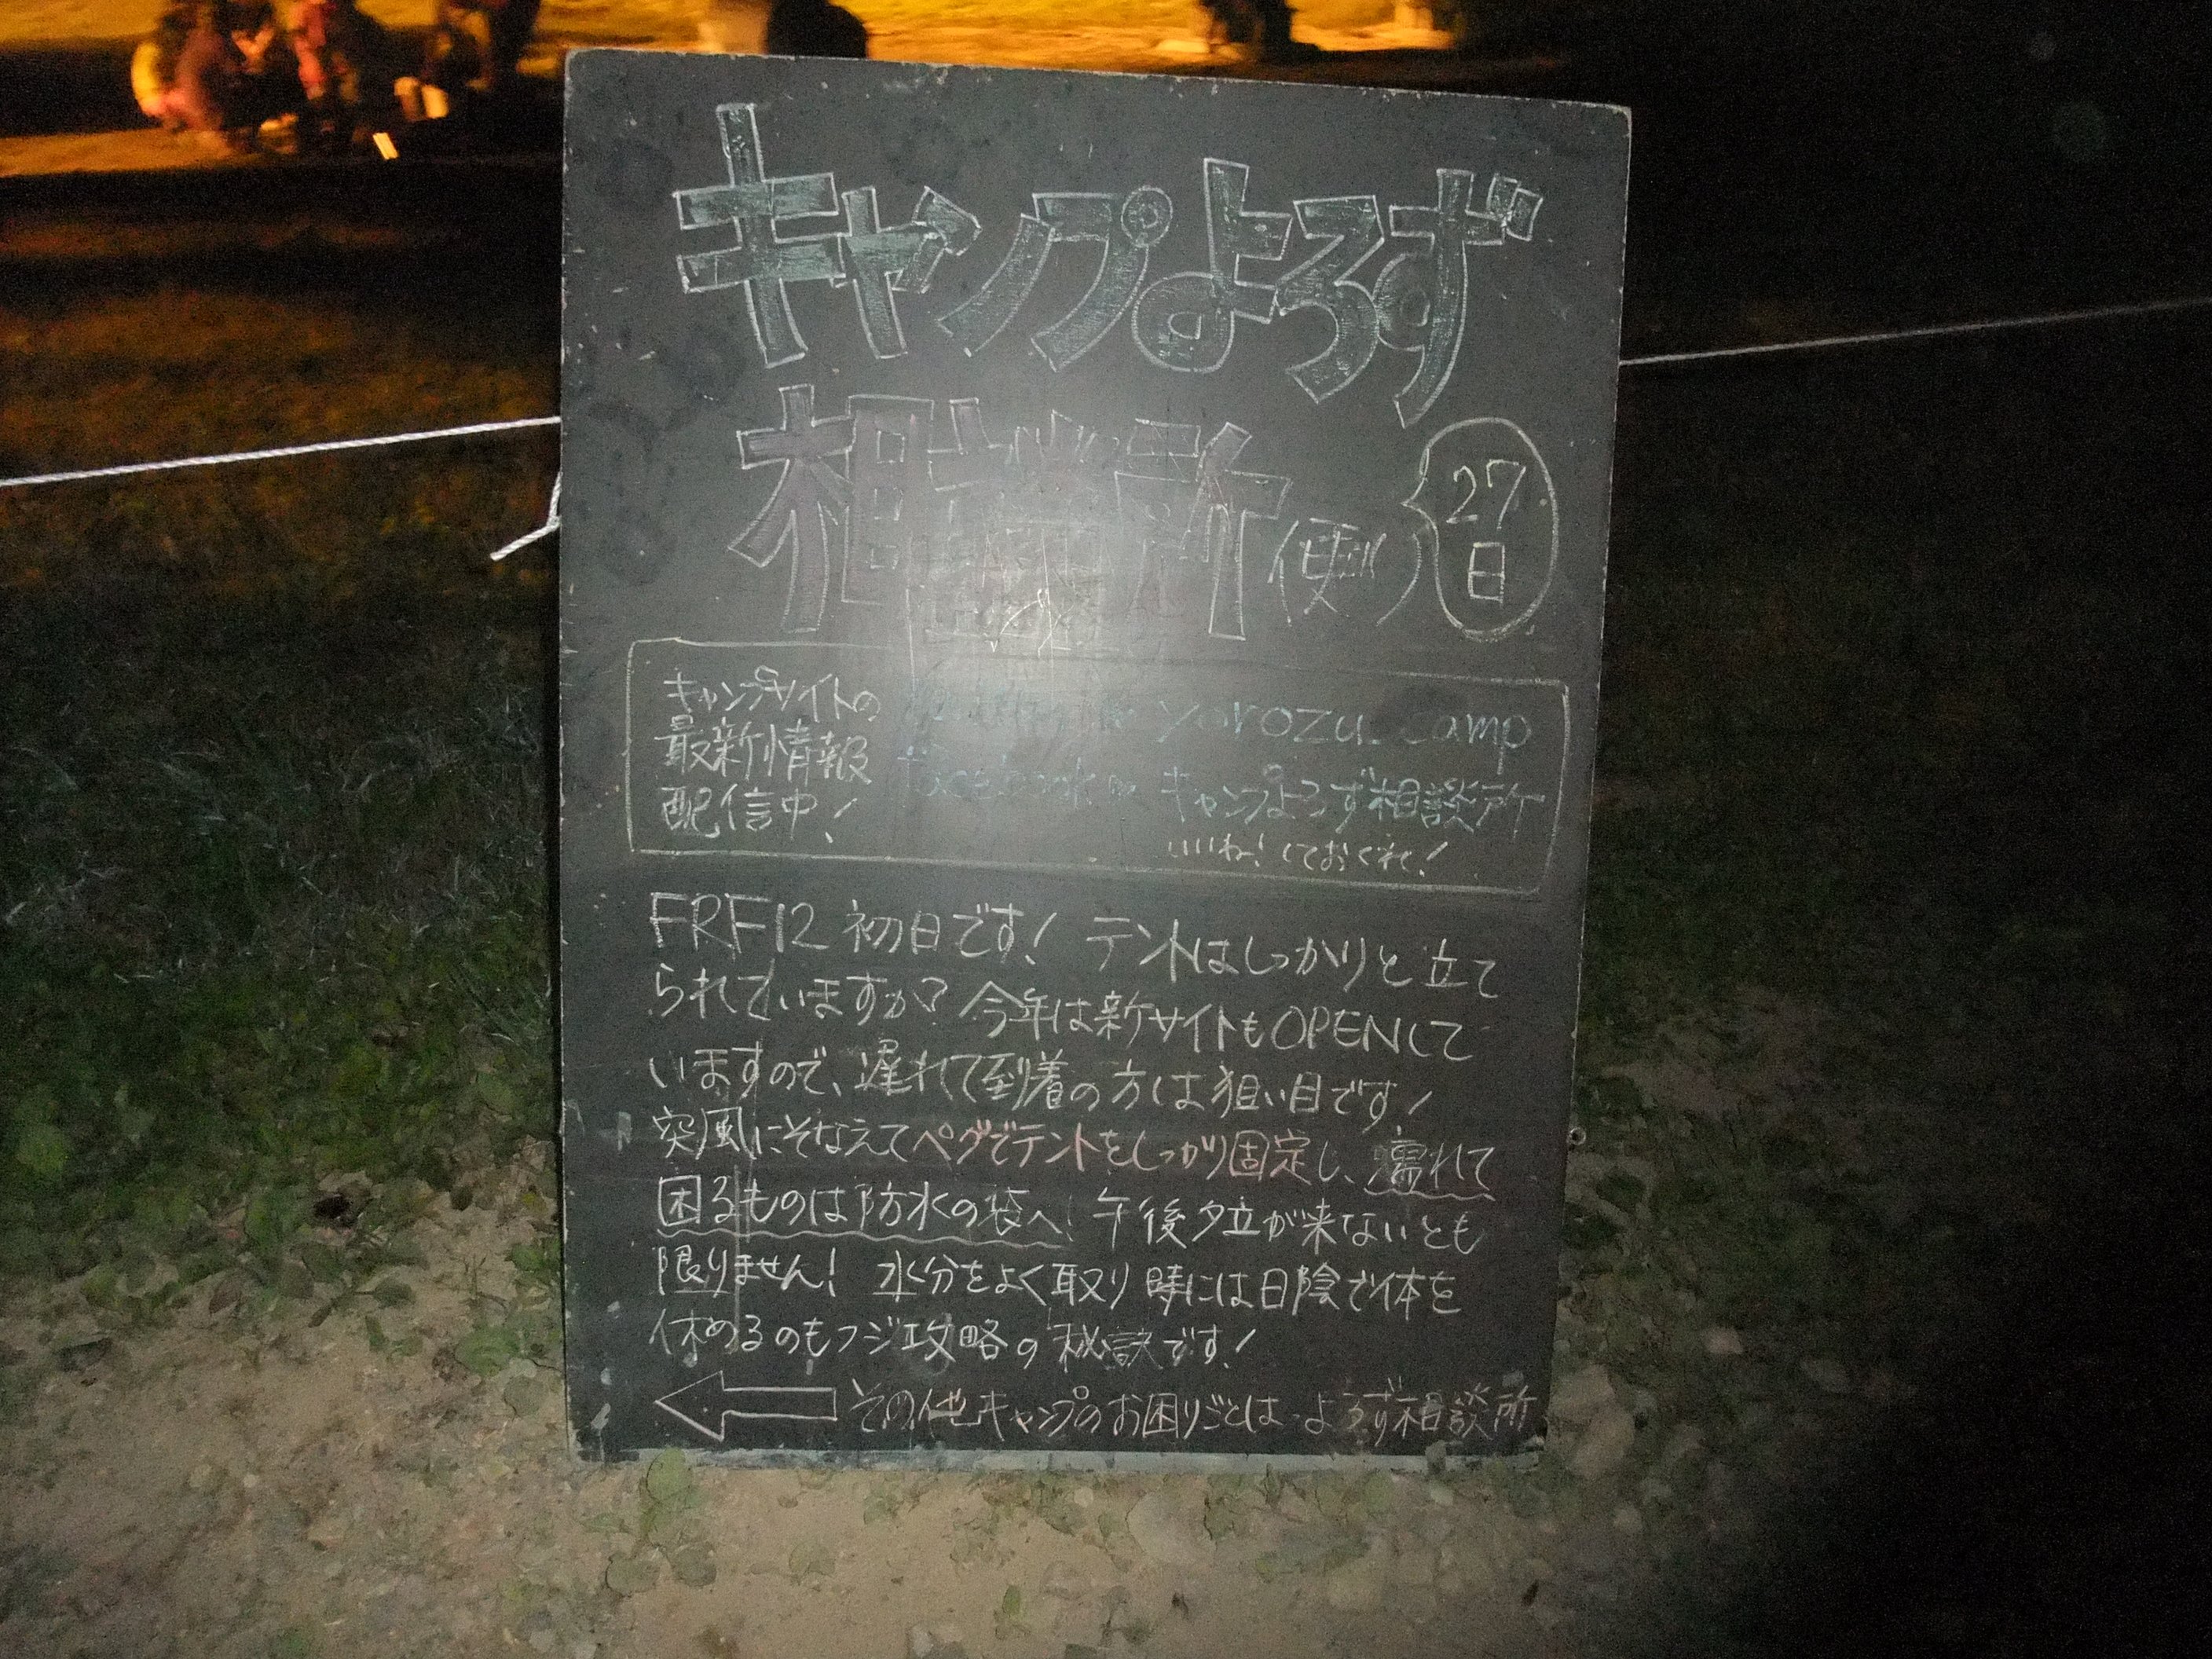 キャンプよろず
相談所便り
27日
キャンプサイトの
最新情報
配信中!
yorozu_camp
facebook キャンプよろず相談所
いいね!しておくれ!
FRF12 初日です! テントはしっかりと立て
られていますか? 今年は新サイトもOPENして
いますので、遅れて到着の方は狙い目です!
突風にそなえてペグでテントをしっかり固定し、濡れて
困るものは防水の袋へ! 午後夕立が来ないとも
限りません! 水分をよく取り時には日陰で体を
休めるのもフジ攻略の秘訣です!
その他キャンプのお困りごとは よろず相談所